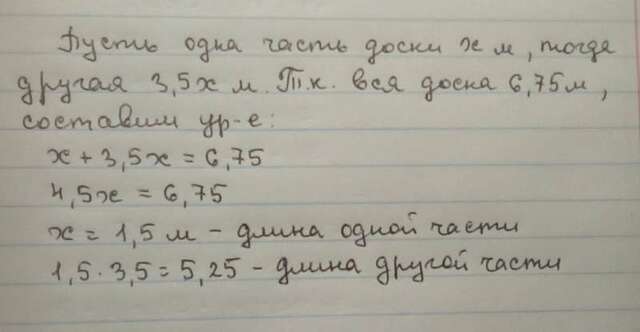 Пусть одна часть доски x м, тогда
другая 3,5x м. Т.к. вся доска 6,75м,
составим ур-е:
x + 3,5x = 6,75
4,5x = 6,75
x = 1,5 м - длина одной части
1,5 · 3,5 = 5,25 - длина другой части